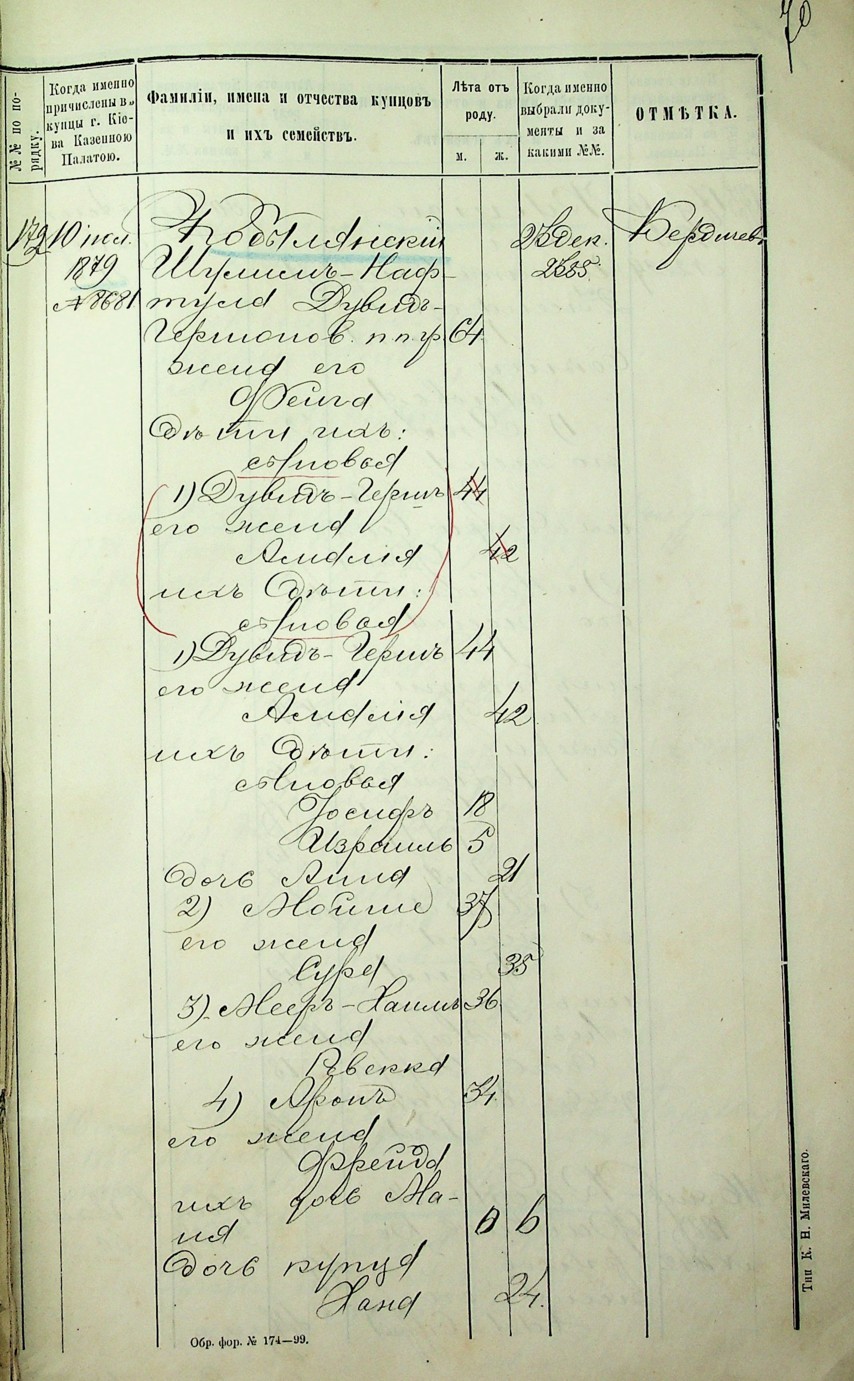 70
№№ по по-
рядку.
Когда именно
причислены в
купцы г. Кіе-
ва Казенною
Палатою.
Фамиліи, имена и отчества купцовъ
и ихъ семействъ.
Лѣта отъ
роду.
м.
ж.
Когда именно
выбрали доку-
менты и за
какими №№.
ОТМѢТКА.
172
10 июл.
1879
№ 8681
Кобылянскій
Шулимъ-Наф-
тула Дувидъ-
Гершонов. 64
жена его
Фейга
Дѣти ихъ:
сыновья
1) Дувидъ-Гершъ 44
его жена
Амалія 42
ихъ Дѣти:
сыновья
1) Дувидъ-Гершъ 44
его жена
Амалія 42
ихъ Дѣти:
сыновья
Іосифъ 18
Израиль 5
дочь Анна 21
2) Мойше 37
его жена
Сура 35
3) Мееръ-Хаимъ 36
его жена
Ривекка
4) Аронъ 34
его жена
Фрейда
ихъ дочь Ма-
ня 6
дочь купца
Хана 24.
дек.
Бердичевъ
Обр. фор. № 174—99.
Тип К. Н. Милевскаго.